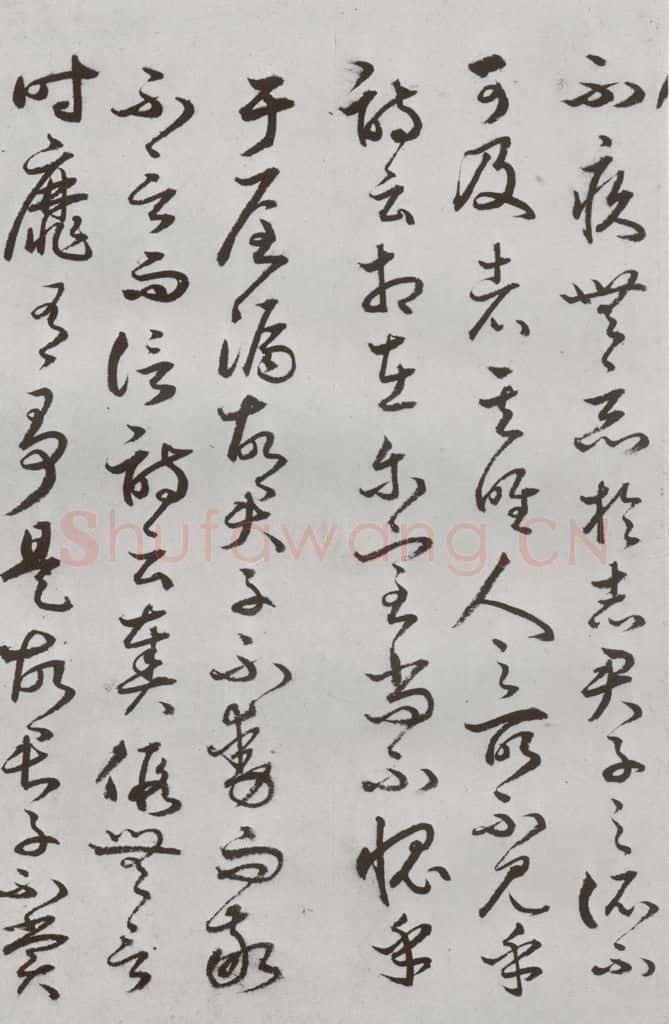 不疚無惡於志君子之所不
可及者其唯人之所不見乎
詩云相在爾室尚不愧乎
于屋漏故君子不動而敬
不言而信詩云奏假無言
時靡有爭是故君子不賞
Shufawang.CN